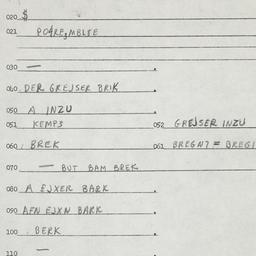 020 $
021 PO4RE,MBLEE
030 —
040 DER GREJSER BRIK
050 A INZU
051 KEMP3 052 GREJSER INZU
060 BREK 061 BREGN7 = BREGI
070 — BUT BAM BREK
080 A EJXER BARK
090 AFN EJXN BARK
100 BERK
110 —